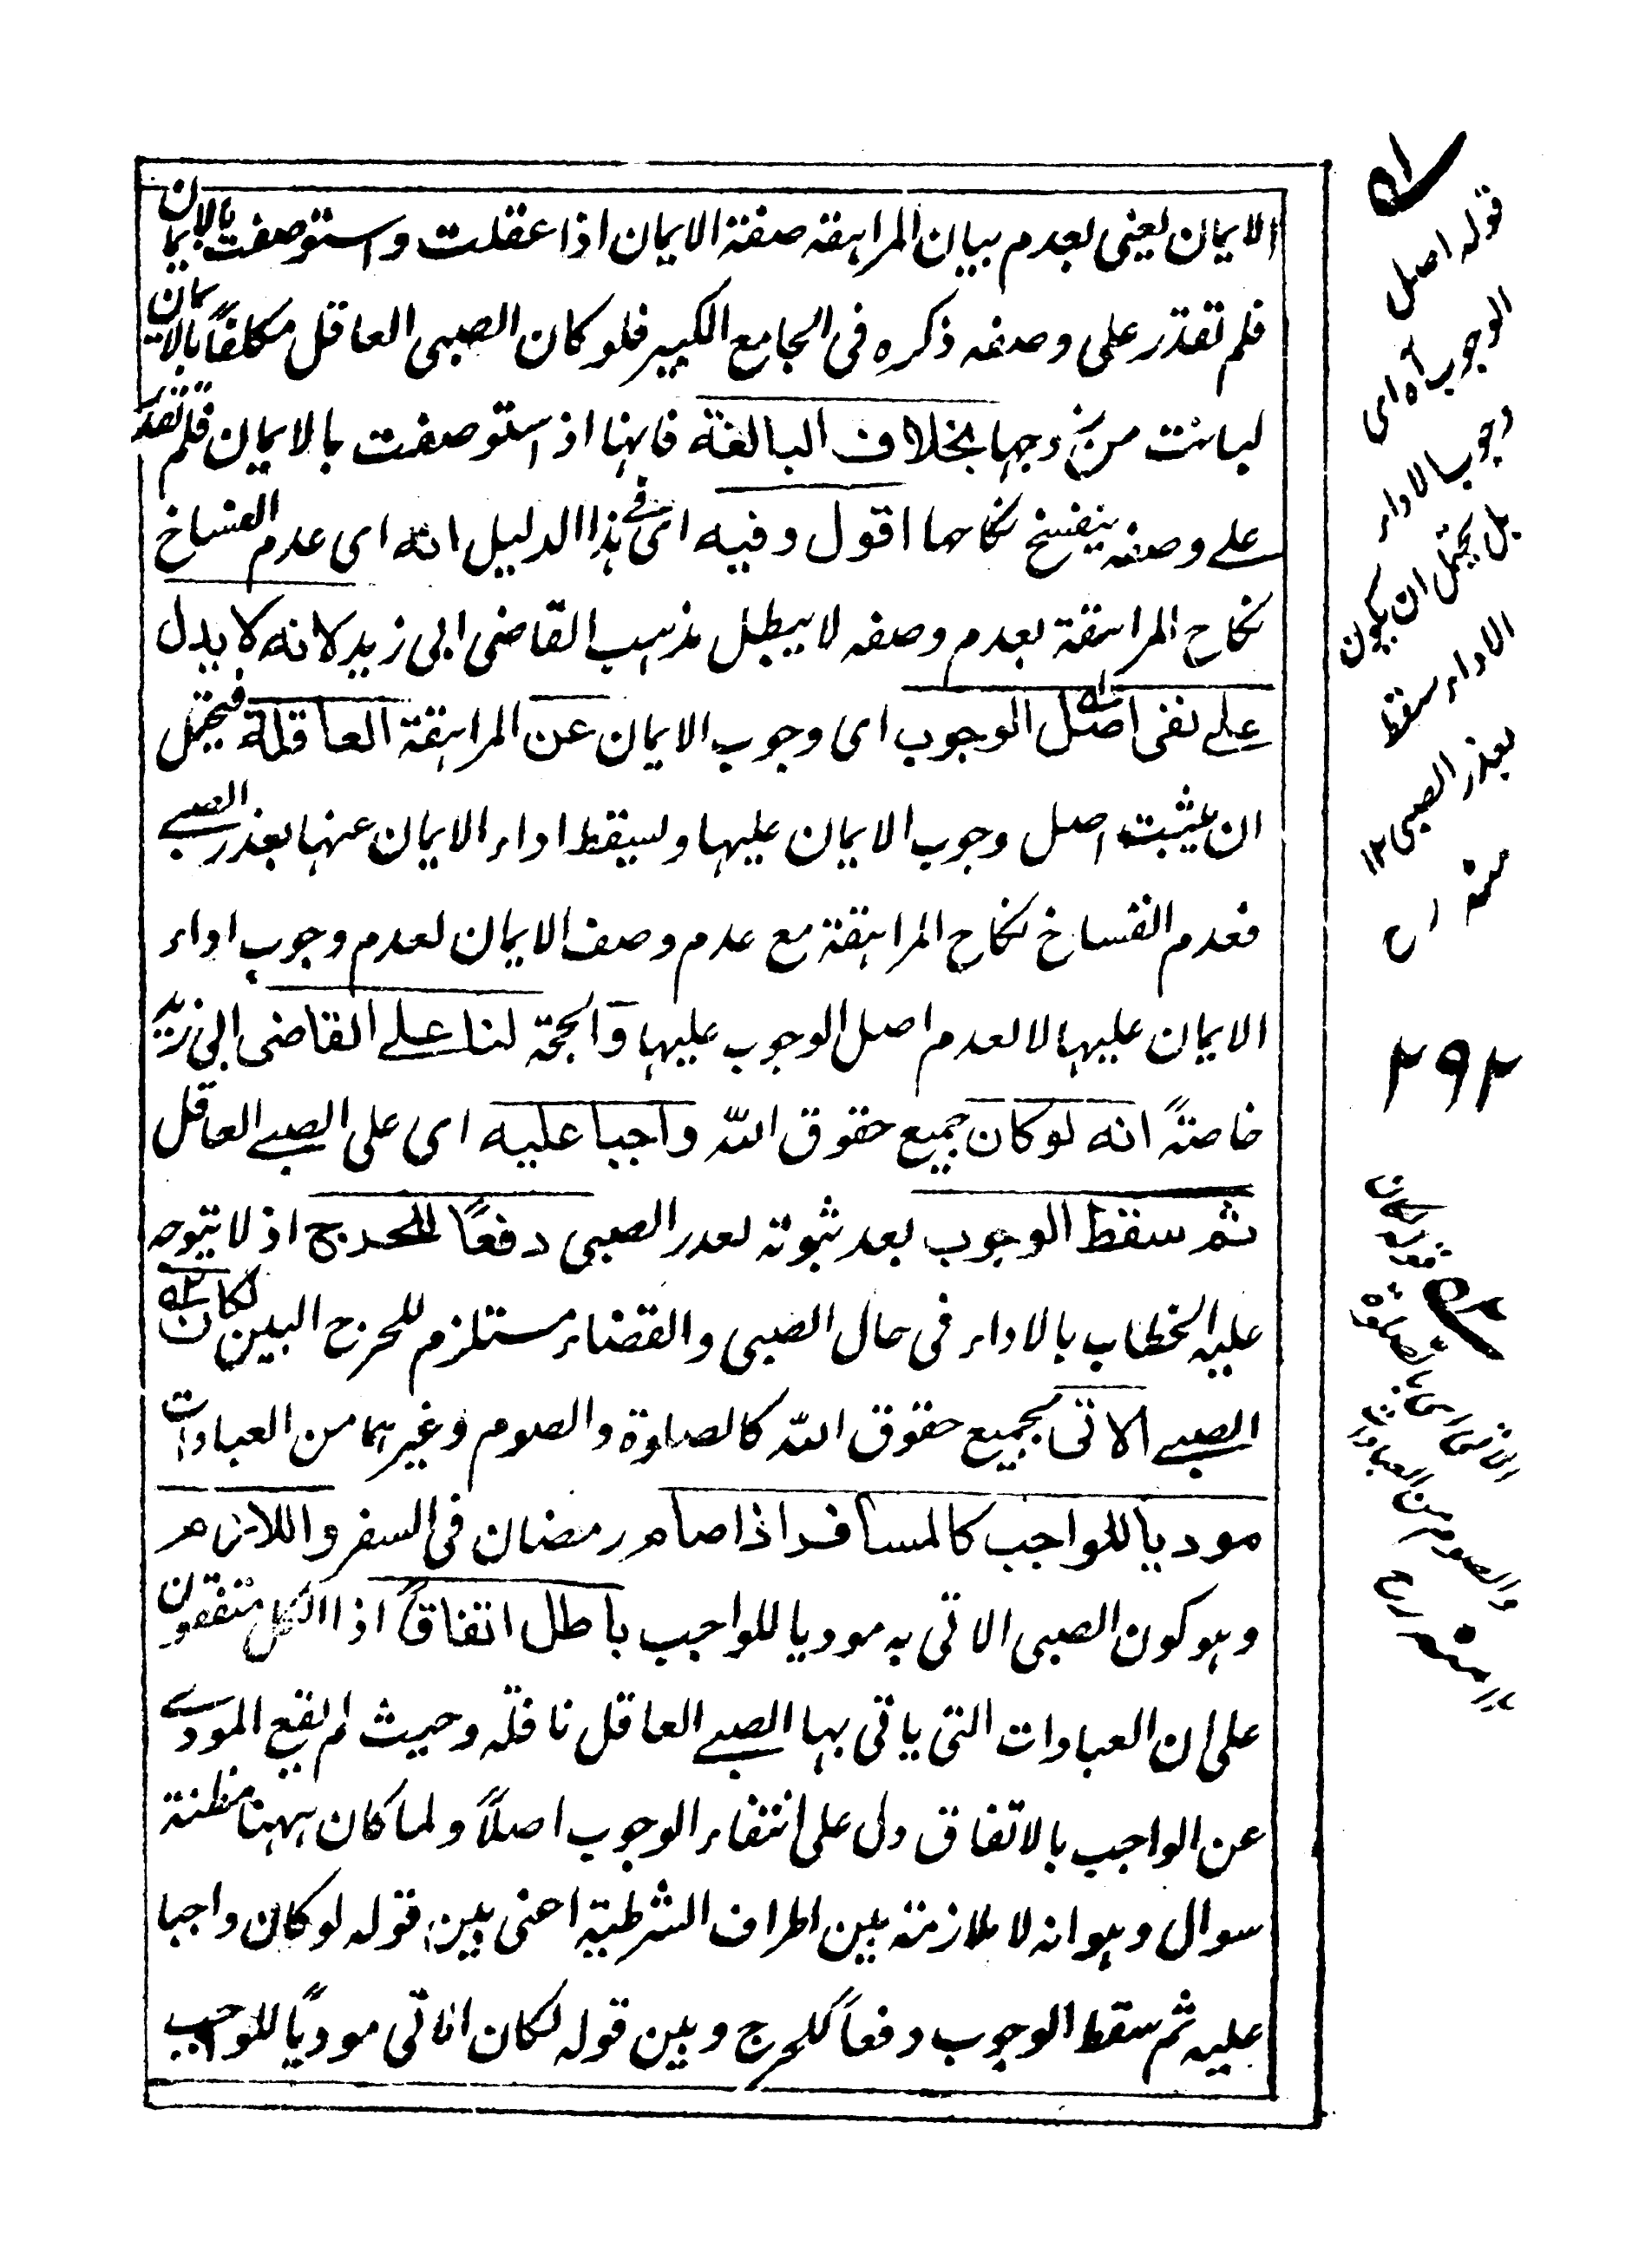 الايمان يعنى بعدم بيان المراهقة صفة الايمان اذا عقلت واستوصفت بالايمان
فلم تقدر على وصفه ذكره فى الجامع الكبير فلو كان الصبى العاقل مكلفاً بالايمان
لبانت من زوجها بخلاف البالغة فانها اذا استوصفت بالايمان فلم تقدر
على وصفه ينفسخ نكاحها اقول وفيه اى فى هذا الدليل انه اى عدم انفساخ
نكاح المراهقة بعدم وصفه لا يبطل مذهب القاضى ابى زيد لانه لا يدل
على نفى اصل الوجوب اى وجوب الايمان عن المراهقة العاقلة فيحتمل
ان يثبت اصل وجوب الايمان عليها ويسقط اداء الايمان عنها بعذر الصبى
فعدم انفساخ نكاح المراهقة مع عدم وصف الايمان لعدم وجوب اداء
الايمان عليها لا لعدم اصل الوجوب عليها والحجة لنا على القاضى ابى زيد
خاصةً انه لو كان جميع حقوق الله واجبا عليه اى على الصبى العاقل
ثم سقط الوجوب بعد ثبوته لعذر الصبى دفعاً للحرج اذ لا يتوجه
عليه الخطاب بالاداء فى حال الصبى والقضاء مستلزم للحرج البين لكان
الصبى الاتى بجميع حقوق الله كالصلوة والصوم وغيرهما من العبادات
موديا للواجب كالمسافر اذا صام رمضان فى السفر واللازم
وهو كون الصبى الاتى به موديا للواجب باطل اتفاقاً اذا الكل متفقون
على ان العبادات التى ياتى بها الصبى العاقل نافلة وحيث لم يقع المودى
عن الواجب بالاتفاق دل على انتفاء الوجوب اصلاً ولما كان ههنا مظنة
سوال وهو انه لا ملازمة بين اطراف الشرطية اعنى بين قوله لو كان واجبا
عليه ثم سقط الوجوب دفعاً للحرج وبين قوله لكان الاتى مودياً للواجب
۵۱
قوله اصل
الوجوب آه اى
وجوب الاداء
بل يحتمل ان يكون
الاداء سقط
بعذر الصبى ۱۲
منه رح
۲۹۲
۵۲
قوله لكان
الاتى اى بالصلوة
والصوم من العبادات
منه رح